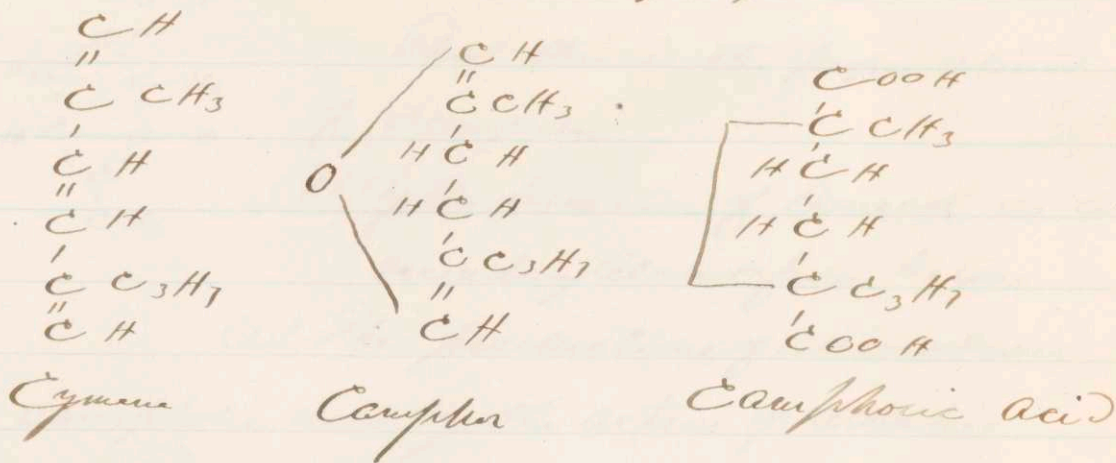 CH
"
C CH3
'
CH
"
CH
'
C C3H7
"
CH
Cymene
CH
"
C CH3
'
H C H
'
O
H C H
'
C C3H7
"
CH
Camphor
COOH
'
C CH3
'
H C H
'
H C H
'
C C3H7
'
COOH
Camphoric acid